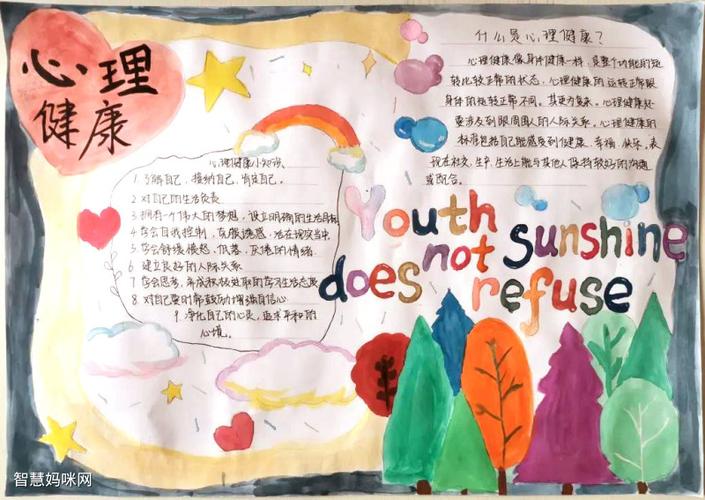 心理
健康
什么是心理健康？
心理健康像身体健康一样，是整个功能的运
转比较正常的状态，心理健康的运转正常跟
身体的运转正常不同，其更为复杂。心理健康还
要涉及到跟周围人的人际关系。心理健康的
标准包括自己能感受到健康、幸福、快乐。表
现在社交、生产、生活上能与其他人保持较好的沟通
或配合。
心理健康小知识
1 了解自己，接纳自己，肯定自己。
2 对自己的生活负责
3 拥有一个伟大的梦想，设立明确的生活目标
4 学会自我控制，克服诱惑，活在现实当中
5 学会舒缓愤怒、低落、厌倦的情绪
6 建立良好的人际关系
7 学会思考，养成积极进取的学习生活态度
8 对自己要时常鼓励增强自信心
9 净化自己的心灵，追求平和的
心境。
Youth
does not sunshine
refuse
智慧妈咪网